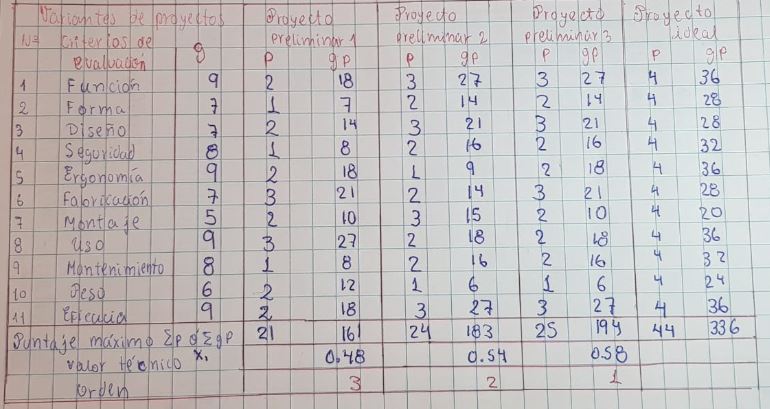 Variantes de proyectos Proyecto Proyecto Proyecto Proyecto
Nº Criterios de g preliminar 1 preliminar 2 preliminar 3 ideal
evaluación P gP P gP P gP P gP
1 Función 9 2 18 3 27 3 27 4 36
2 Forma 7 1 7 2 14 2 14 4 28
3 Diseño 7 2 14 3 21 3 21 4 28
4 Seguridad 8 1 8 2 16 2 16 4 32
5 Ergonomía 9 2 18 1 9 2 18 4 36
6 Fabricación 7 3 21 2 14 3 21 4 28
7 Montaje 5 2 10 3 15 2 10 4 20
8 Uso 9 3 27 2 18 2 18 4 36
9 Mantenimiento 8 1 8 2 16 2 16 4 32
10 Peso 6 2 12 1 6 1 6 4 24
11 Eficacia 9 2 18 3 27 3 27 4 36
Puntaje máximo ΣP ó ΣgP 21 161 24 183 25 194 44 336
valor técnico X, 0.48 0.54 0.58
Orden 3 2 1